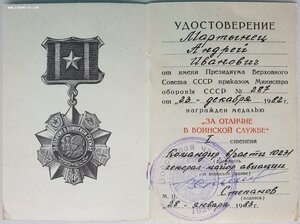 УДОСТОВЕРЕНИЕ
Мартынец
Андрей
Иванович
от имени Президиума Верховного
Совета СССР приказом Министра
обороны СССР № 287
от „22“ декабря 1982 г.
награжден медалью
"ЗА ОТЛИЧИЕ
В ВОИНСКОЙ СЛУЖБЕ"
I степени
Командир в/части 10231
генерал-майор авиации
Степанов
(подпись)
„28“ января 1983 г.